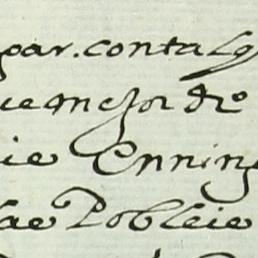 par. conta l
ue mejor dro
ie Enning
la e Pobleie